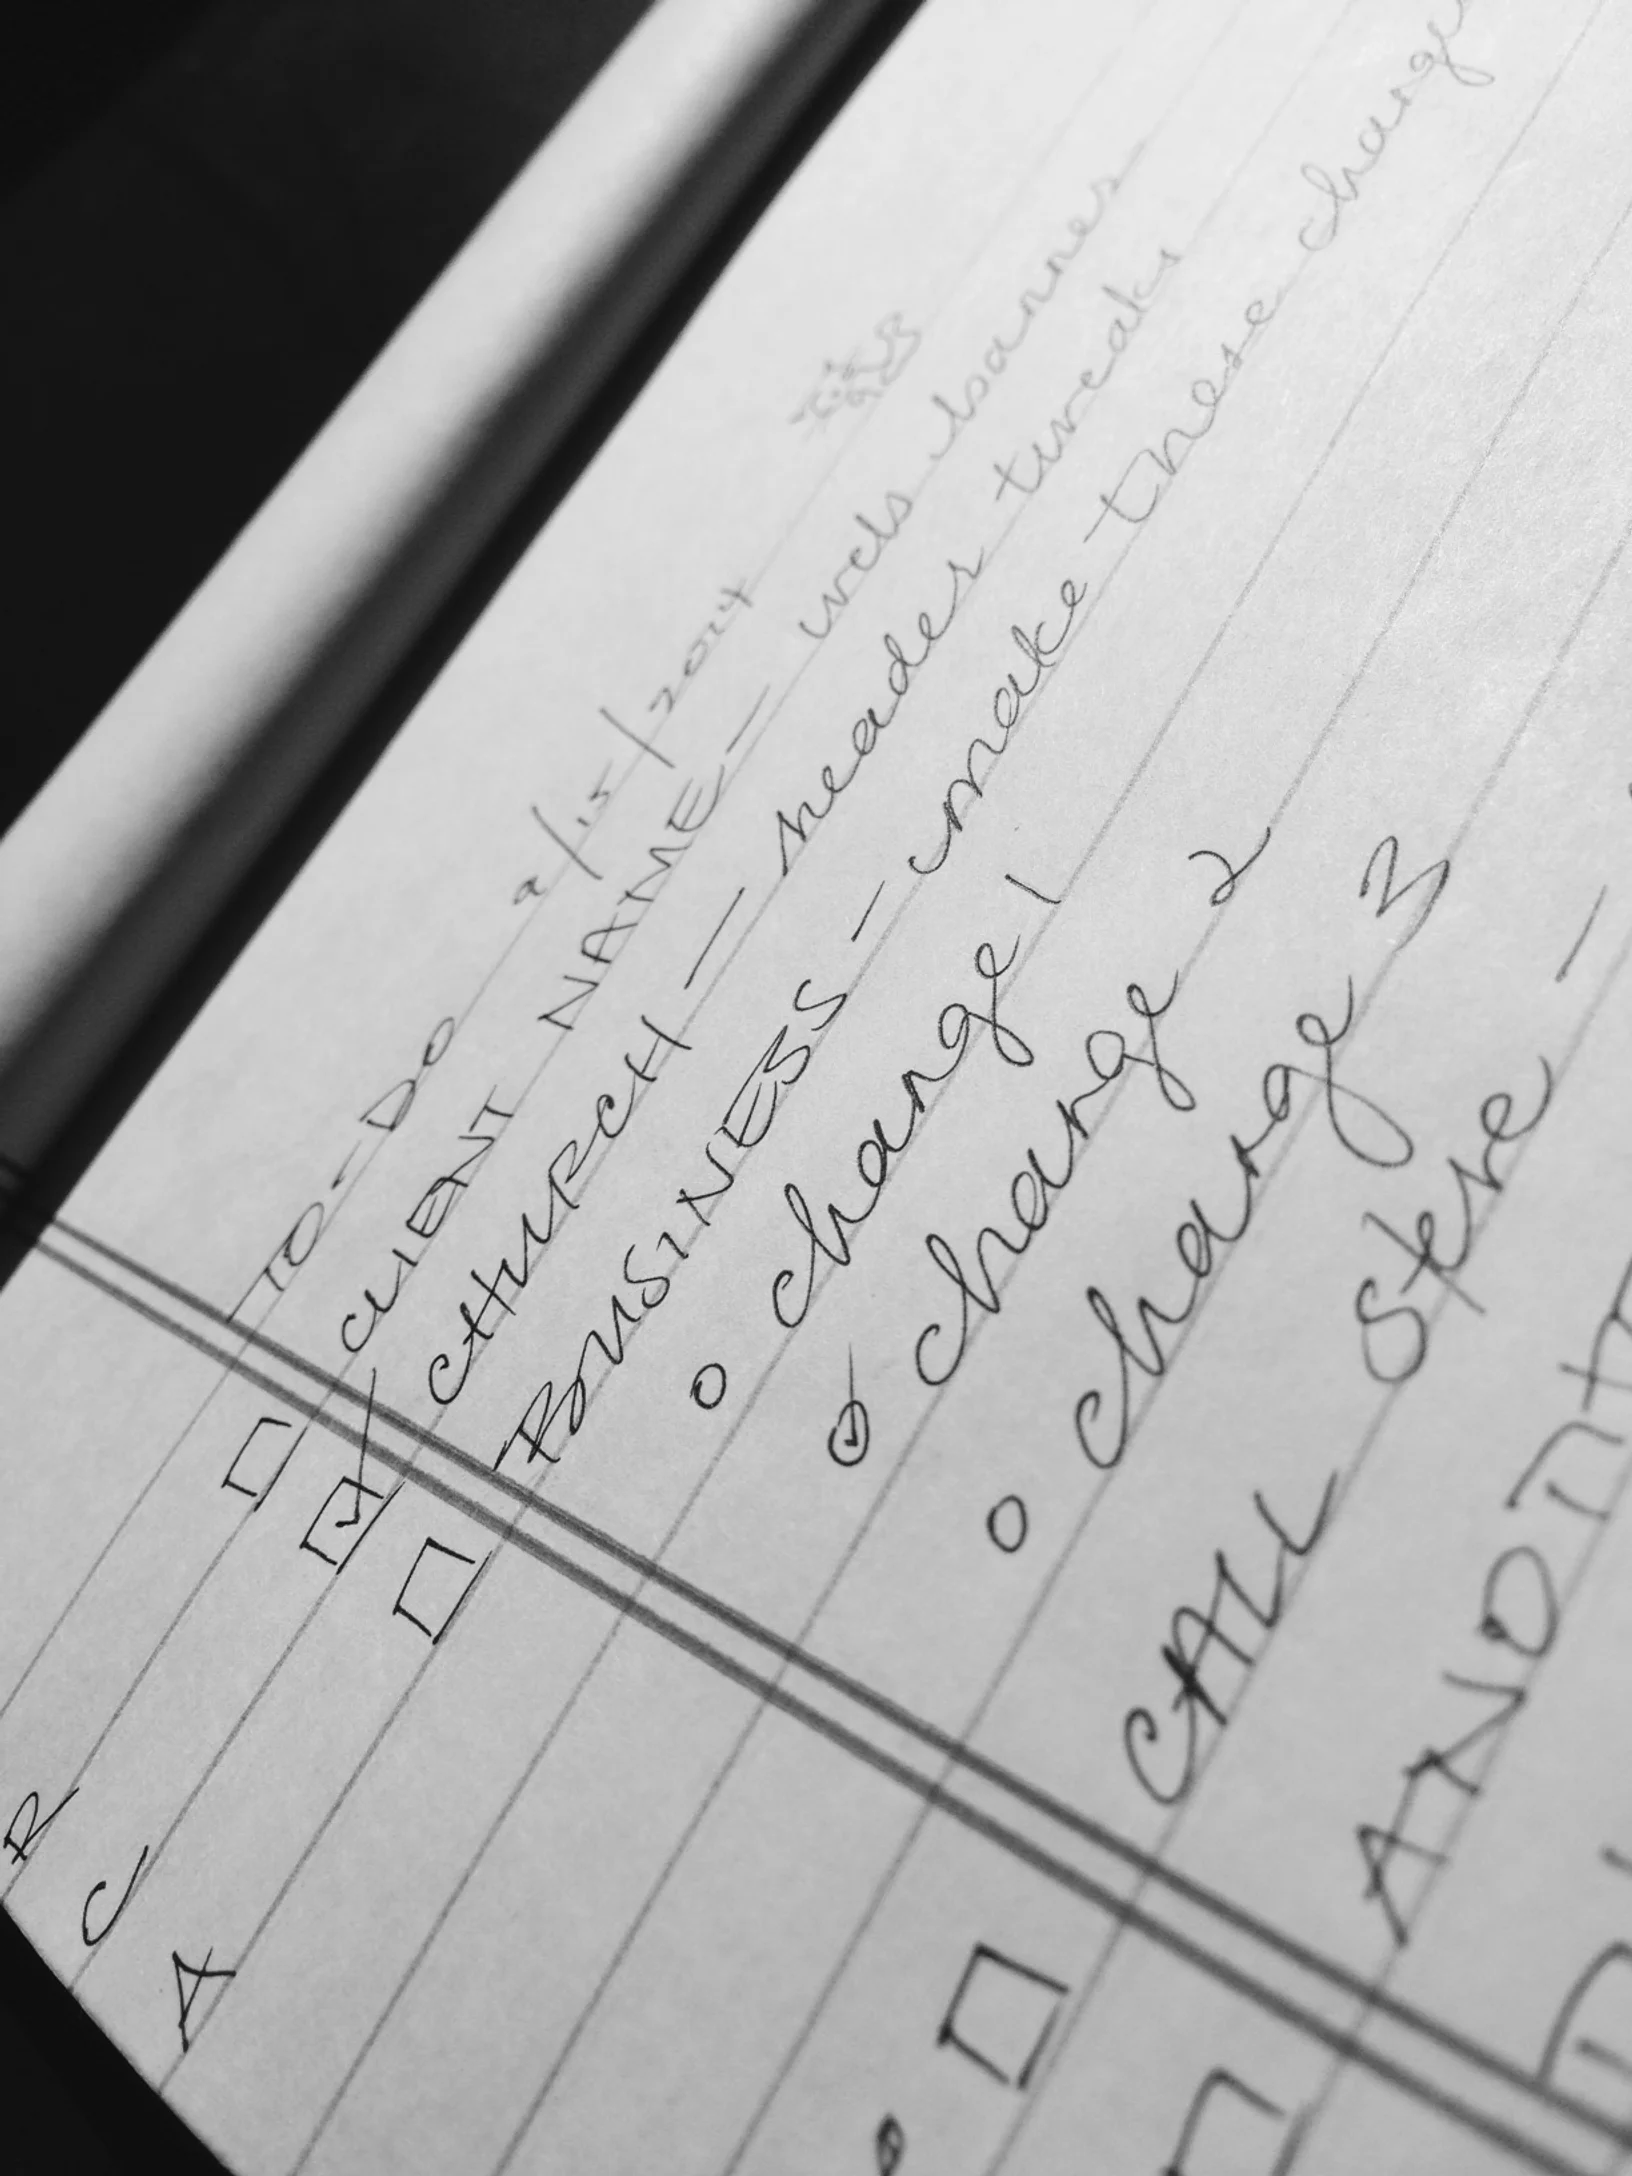 TO-DO 9/15/2014
R □ CLIENT NAME — web banner
C ☑ CHURCH — header tweaks
A □ BUSINESS — make these change
○ change 1
✓ change 2
○ change 3
□ CALL Steve —
□